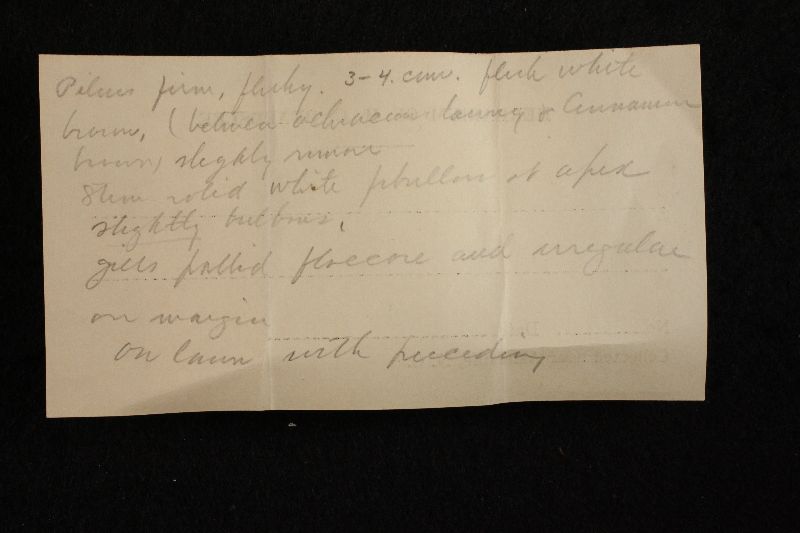 Pileus firm, fleshy. 3-4. cm. flesh white
brown, (between ochraceous tawny & Cinnamon
brown) slightly
Stem solid white fibrillose at apex
slightly bulbous,
gills pallid floccose and irregular
on margin
On lawn with preceding